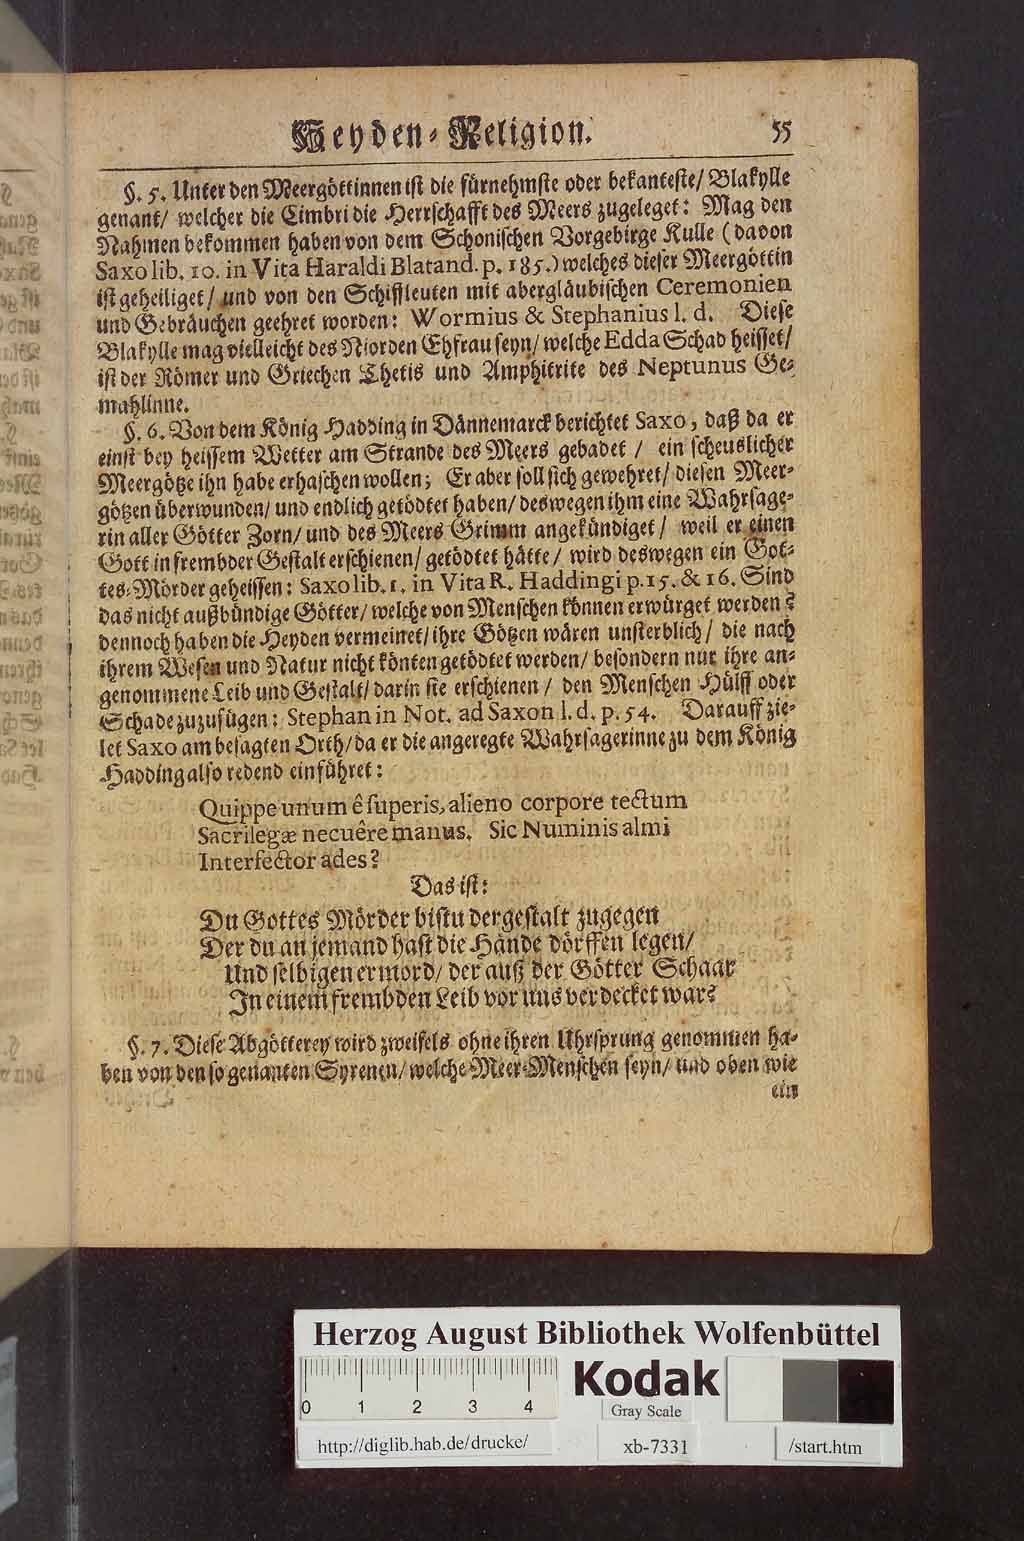 Heyden-Religion. 55
§. 5. Unter den Meergöttinnen ist die fürnehmste oder bekanteste/ Blakylle
genant/ welcher die Cimbri die Herrschafft des Meers zugeleget: Mag den
Nahmen bekommen haben von dem Schonischen Vorgebirge Kulle (davon
Saxo lib. 10. in Vita Haraldi Blatand. p. 185.) welches dieser Meergöttin
ist geheiliget/ und von den Schiffleuten mit abergläubischen Ceremonien
und Gebräuchen geehret worden: Wormius & Stephanius l. d. Diese
Blakylle mag vielleicht des Niorden Ehfrau seyn/ welche Edda Schad heisset/
ist der Römer und Griechen Thetis und Amphitrite des Neptunus Ge-
mahlinne.
§. 6. Von dem König Hadding in Dännemarck berichtet Saxo, daß da er
einst bey heissem Wetter am Strande des Meers gebadet / ein scheuslicher
Meergötze ihn habe erhaschen wollen; Er aber soll sich gewehret/ diesen Meer-
götzen überwunden/ und endlich getödtet haben/ deswegen ihm eine Wahrsage-
rin aller Götter Zorn/ und des Meers Grimm angekündiget/ weil er einen
Gott in frembder Gestalt erschienen/ getödtet hätte/ wird deswegen ein Got-
tes-Mörder geheissen: Saxo lib. 1. in Vita R. Haddingi p. 15. & 16. Sind
das nicht außbündige Götter/ welche von Menschen können erwürget werden?
dennoch haben die Heyden vermeinet/ ihre Götzen wären unsterblich/ die nach
ihrem Wesen und Natur nicht könten getödtet werden/ besondern nur ihre an-
genommene Leib und Gestalt/ darin sie erschienen/ den Menschen Hülff oder
Schade zuzufügen: Stephan in Not. ad Saxon l. d. p. 54. Darauff zie-
let Saxo am besagten Orth/ da er die angeregte Wahrsagerinne zu dem König
Hadding also redend einführet:
Quippe unum ê superis, alieno corpore tectum
Sacrilegæ necuêre manus. Sic Numinis almi
Interfector ades?
Das ist:
Du Gottes Mörder bistu dergestalt zugegen
Der du an jemand hast die Hände dörffen legen/
Und selbigen ermord/ der auß der Götter Schaar
In einem frembden Leib vor uns verdecket war?
§. 7. Diese Abgötterey wird zweifels ohne ihren Uhrsprung genommen ha-
ben von den so genanten Syrenen/ welche Meer-Menschen seyn/ und oben wie
ein
Herzog August Bibliothek Wolfenbüttel
0 1 2 3 4
Kodak
Gray Scale
http://diglib.hab.de/drucke/ xb-7331 /start.htm